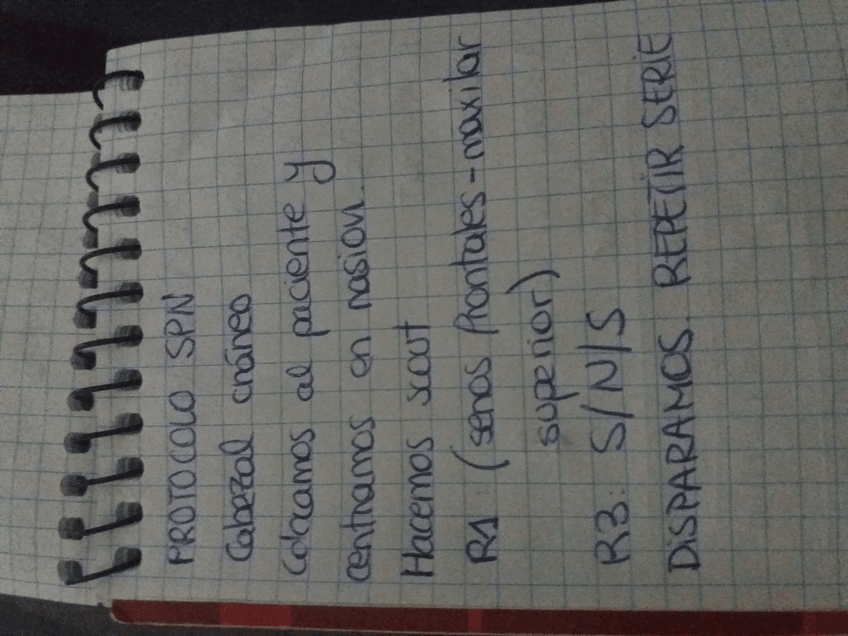 PROTOCOLO SPN
Cabezal cráneo
Colocamos al paciente y
centramos en nasion.
Hacemos scout
R1 (senos frontales - maxilar
superior)
R3: S/N/S
DISPARAMOS. REPETIR SERIE